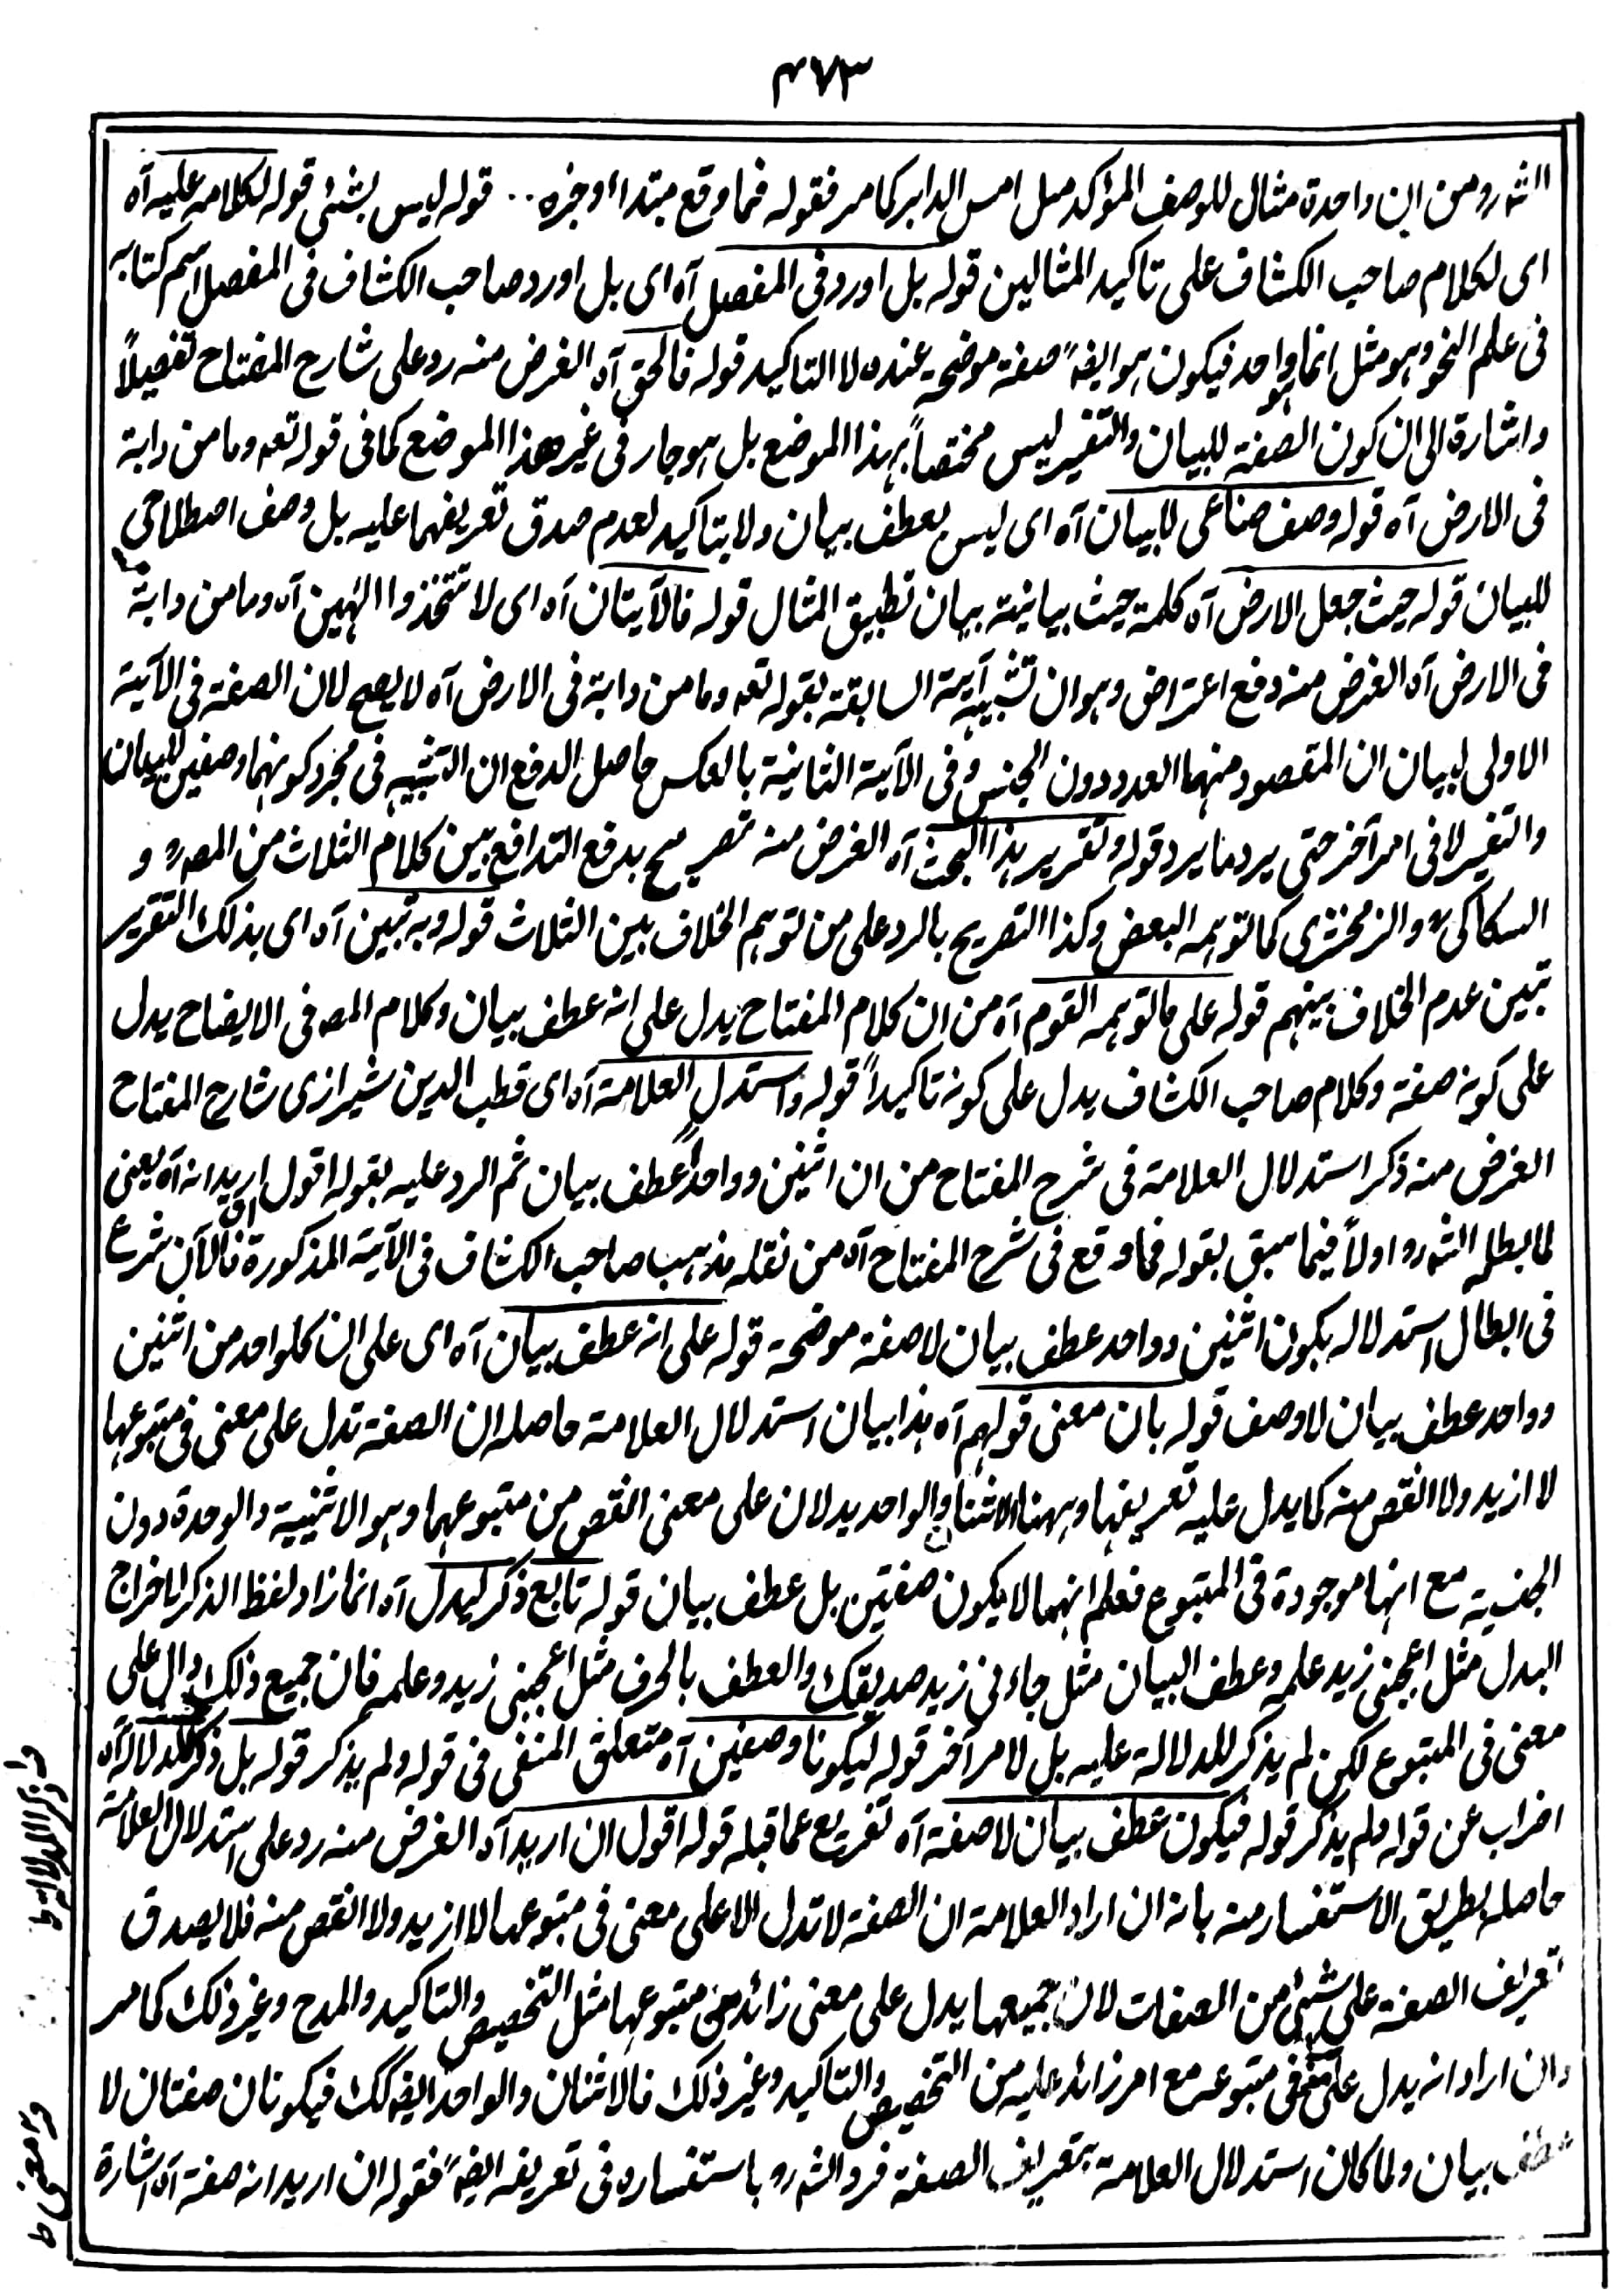 ۴۷۳
الشرو من ان واحدة مثال للوصف المؤكد مثل امس الدابر كما مر فقوله فما وقع مبتدا اوخبره .. قوله ليس بشئى قوله لكلامه عليه آه
اى لكلام صاحب الكشاف على تاكيد المثالين قوله بل اورد فى المفصل آه اى بل اورد صاحب الكشاف فى المفصل اسم كتابه
فى علم النحو وهو مثل انما هو واحد فيكون هو ايضہ صفة موضحہ عنده لا التاكيد قوله فالحق آه الغرض منه رد على شارح المفتاح تفصيلاً
واشارة الى ان كون الصفة للبيان والتفسير ليس مختصاً بهذا الموضع بل هو جار فى غير هذا الموضع كما فى قوله تعہ وما من دابة
فى الارض آه قوله وصف صناعى للبيان آه اى ليس بعطف بيان ولا بتاكيد لعدم صدق تعريفهما عليه بل وصف اصطلاحى
للبيان قوله حيث جعل الارض آه كلمة حيث بيانية بيان تطبيق المثال قوله فالآيتان آه اى لا تتخذوا الٰهين آه وما من دابة
فى الارض آه الغرض منه دفع اعتراض وهو ان تشبيه آية السابقة بقوله تعہ وما من دابة فى الارض آه لا يصح لان الصفة فى الآية
الاولى لبيان ان المقصود منهما العدد دون الجنس وفى الآية الثانية بالعكس حاصل الدفع ان التشبيه فى مجرد كونهما وصفين للبيان
والتفسير لا فى امر آخر حتى يرد ما يرد قوله وتقرير هذا البحث آه الغرض منه تصريح بدفع التدافع بين كلام الثلاث من المصہ و
السكاكى والزمخشرى كما توهمه البعض وكذا التصريح بالرد على من توهم الخلاف بين الثلاث قوله وبه تبين آه اى بذلك التقرير
تبين عدم الخلاف بينهم قوله على ما توهمه القوم آه من ان كلام المفتاح يدل على انه عطف بيان وكلام المصہ فى الايضاح يدل
على كونه صفة وكلام صاحب الكشاف يدل على كونه تاكيداً قوله واستدل العلامة آه اى قطب الدين شيرازى شارح المفتاح
الغرض منه ذكر استدلال العلامة فى شرح المفتاح من ان اثنين وواحداً عطف بيان ثم الرد عليه بقوله اقول ان اريد انه آه يعنى
لما ابطلہ الشہرو اولاً فيما سبق بقوله فما وقع فى شرح المفتاح آه من نقله مذهب صاحب الكشاف فى الآية المذكورة فالآن شرع
فى ابطال استدلاله بكون اثنين وواحد عطف بيان لا صفة موضحة قوله على انه عطف بيان آه اى على ان كلواحد من اثنين
وواحد عطف بيان لا وصف قوله بان معنى قولهم آه هذا بيان استدلال العلامة حاصله ان الصفة تدل على معنى فى متبوعها
لا ازيد ولا انقص منه كما يدل عليه تعريفها وههنا الاثنان والواحد يدلان على معنى انقص من متبوعهما وهو الاثنيية والوحدة دون
الجنسية مع انها موجودة فى المتبوع فعلم انهما لا يكون صفتين بل عطف بيان قوله تابع ذكر ليدل آه انما زاد لفظ الذكر لاخراج
البدل مثل اعجبنى زيد علمه وعطف البيان مثل جاءنى زيد صديقك والعطف بالحرف مثل اعجبنى زيد وعلمه فان جميع ذلك دال على
معنى فى المتبوع لكن لم يذكر للدلالة عليه بل لامر آخر قوله ليكونا وصفين آه متعلق المنفى فى قوله ولم يذكر قوله بل ذكر للدلالة آه
اضراب عن قوله ولم يذكر قوله فيكون عطف بيان لا صفة آه تفريع عما قبله قوله اقول ان اريد آه الغرض منه رد على استدلال العلامة
حاصله بطريق الاستفسار منه بانه ان اراد العلامة ان الصفة لا تدل الا على معنى فى متبوعها لا ازيد ولا انقص منه فلا يصدق
تعريف الصفة على شئى من الصفات لان جميعها يدل على معنى زائد من متبوعها مثل التخصيص والتاكيد والمدح وغير ذلك كما مر
وان اراد انه يدل على معنى فى متبوعه مع امر زائد عليه من التخصيص والتاكيد وغير ذلك فالاثنان والواحد ايضہ كك فيكونان صفتان لا
عطف بيان ولما كان استدلال العلامة بتعريف الصفة فرد الشہرو باستفساره فى تعريفہ ايضہ فقوله ان اريد انه صفة آه اشارة